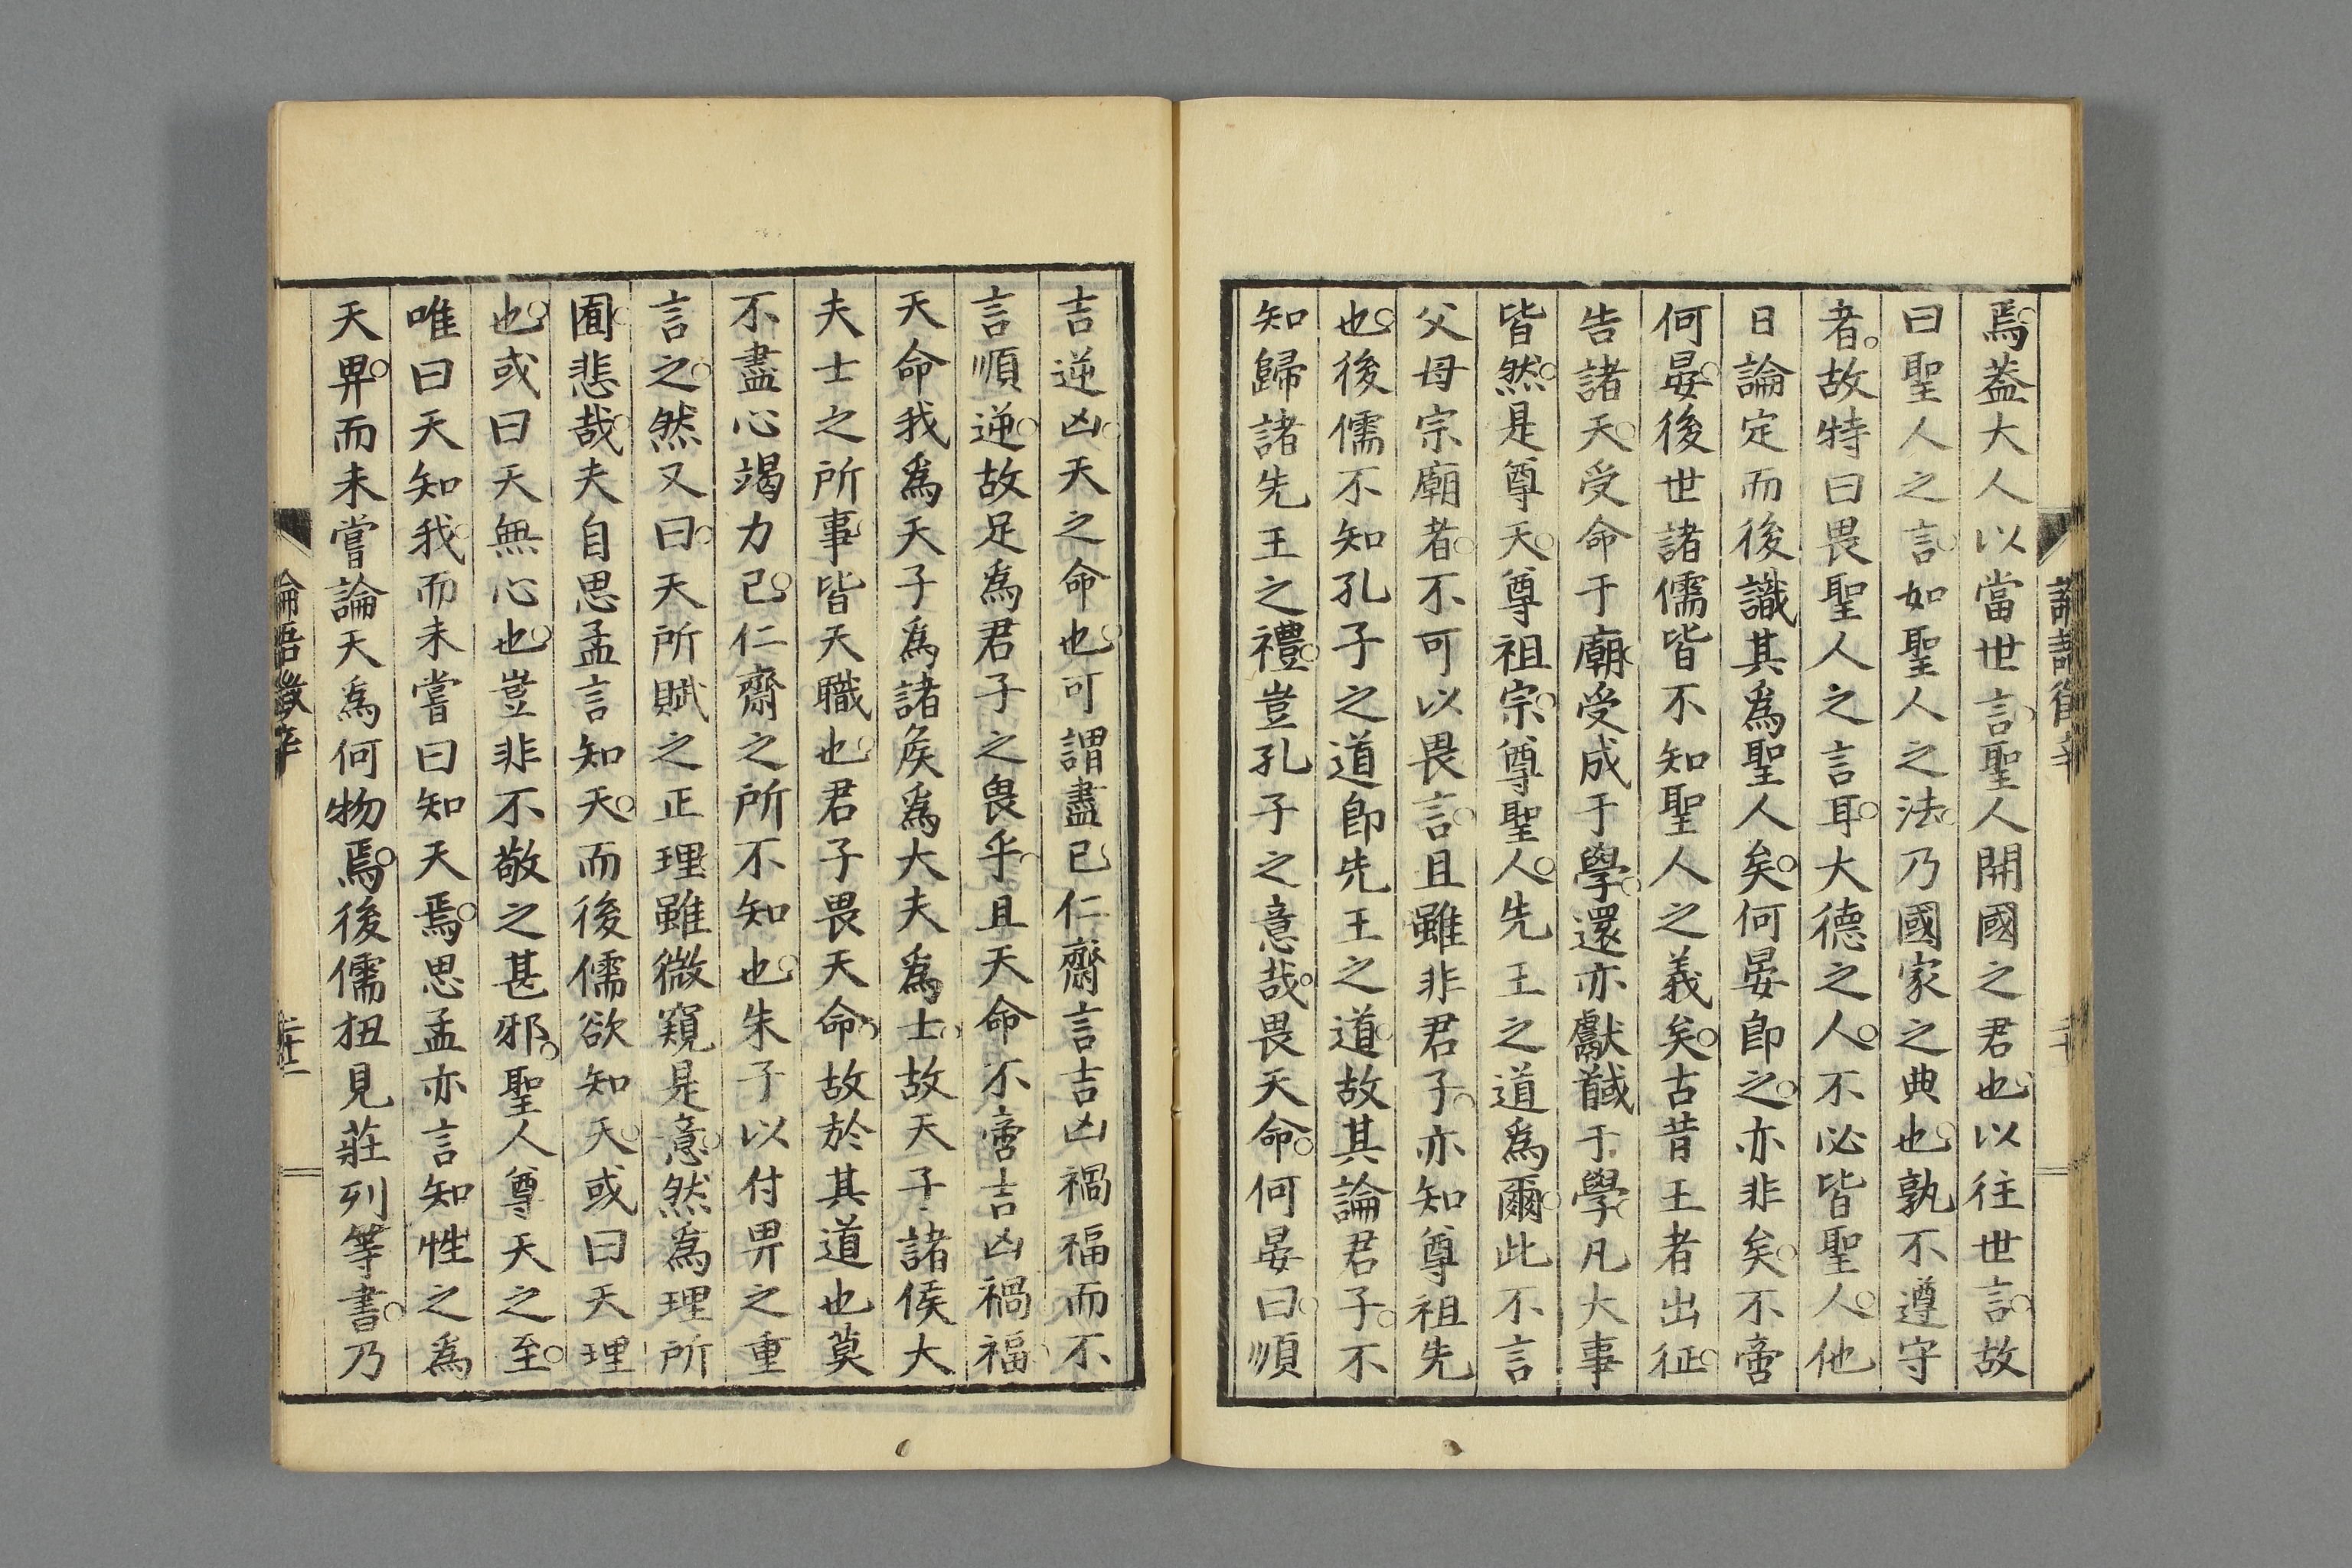 焉。蓋大人以當世言。聖人開國之君也。以往世言。故
曰聖人之言。如聖人之法。乃國家之典也。孰不遵守
者。故特曰畏聖人之言耳。大德之人。不必皆聖人。他
日論定而後識其爲聖人矣。何晏卽之。亦非矣。不啻
何晏。後世諸儒皆不知聖人之義矣。古昔王者出征。
告諸天。受命于廟。受成于學。還亦獻馘于學。凡大事
皆然。是尊天。尊祖宗。尊聖人。先王之道爲爾。此不言
父母宗廟者。不可以畏言。且雖非君子。亦知尊祖先
也。後儒不知孔子之道卽先王之道。故其論君子。不
知歸諸先王之禮。豈孔子之意哉。畏天命。何晏曰。順
吉逆凶。天之命也。可謂盡已。仁齋言吉凶禍福而不
言順逆。故足爲君子之畏乎。且天命不啻吉凶禍福。
天命我爲天子爲諸矦爲大夫爲士。故天子諸侯大
夫士之所事。皆天職也。君子畏天命。故於其道也莫
不盡心竭力已。仁齋之所不知也。朱子以付畀之重
言之。然又曰。天所賦之正理。雖微窺是意。然爲理所
囿。悲哉。夫自思孟言知天。而後儒欲知天。或曰天理
也。或曰天無心也。豈非不敬之甚邪。聖人尊天之至。
唯曰天知我。而未嘗曰知天焉。思孟亦言知性之爲
天畀。而未嘗論天爲何物焉。後儒狃見莊列等書。乃
論語徵辛